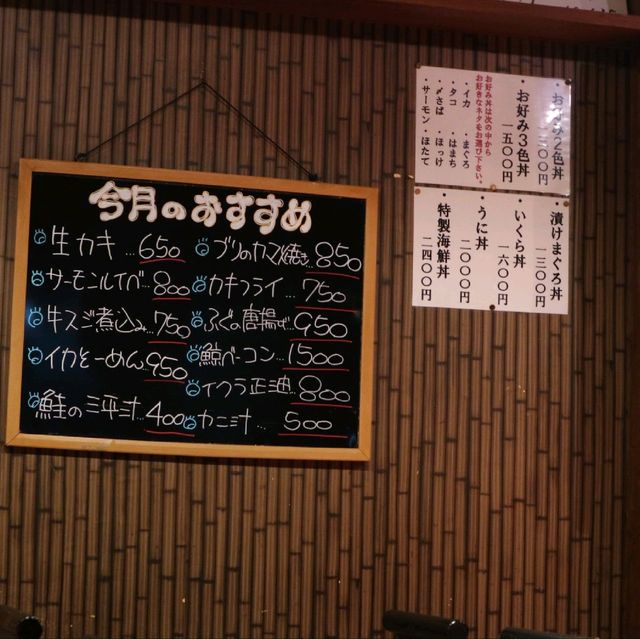 今月のおすすめ
生カキ…650
サーモンルイベ…800
牛スジ煮込み…750
イカそーめん…950
鮭の三平汁…400
ブリのカマ焼き…850
カキフライ…750
ふぐの唐揚げ…950
鯨ベーコン…1500
イクラ正油…800
カニ汁…500
・お好み2色丼
・お好み3色丼
一五〇〇円
お好み丼は次の中から
お好きなネタをお選び下さい。
・イカ ・まぐろ
・タコ ・はまち
・〆さば ・ほっけ
・サーモン ・ほたて
・漬けまぐろ丼
一三〇〇円
・いくら丼
一六〇〇円
・うに丼
二〇〇〇円
・特製海鮮丼
二四〇〇円